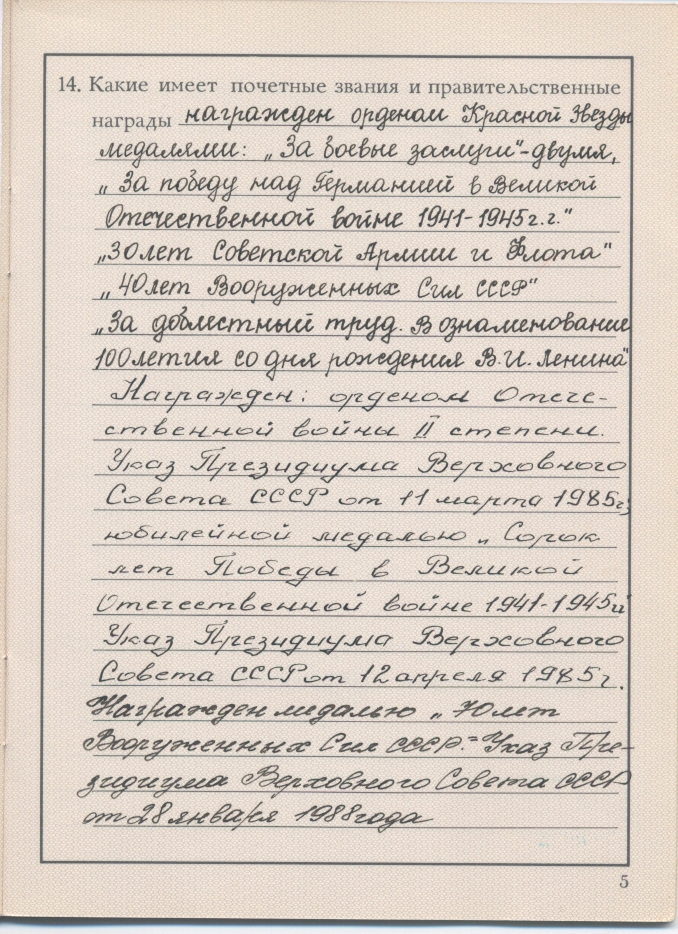 14. Какие имеет почетные звания и правительственные
награды награжден орденом Красной Звезды
медалями: „За боевые заслуги"-двумя,
„За победу над Германией в Великой
Отечественной войне 1941-1945г.г."
„30лет Советской Армии и Флота"
„40лет Вооруженных Сил СССР"
„За доблестный труд. В ознаменование
100летия со дня рождения В.И. Ленина"
Награжден: орденом Отече-
ственной войны II степени.
Указ Президиума Верховного
Совета СССР от 11 марта 1985г;
юбилейной медалью „Сорок
лет Победы в Великой
Отечественной войне 1941-1945гг
Указ Президиума Верховного
Совета СССР от 12 апреля 1985г.
Награжден медалью „70лет
Вооруженных Сил СССР." Указ Пре-
зидиума Верховного Совета СССР
от 28 января 1988года
5